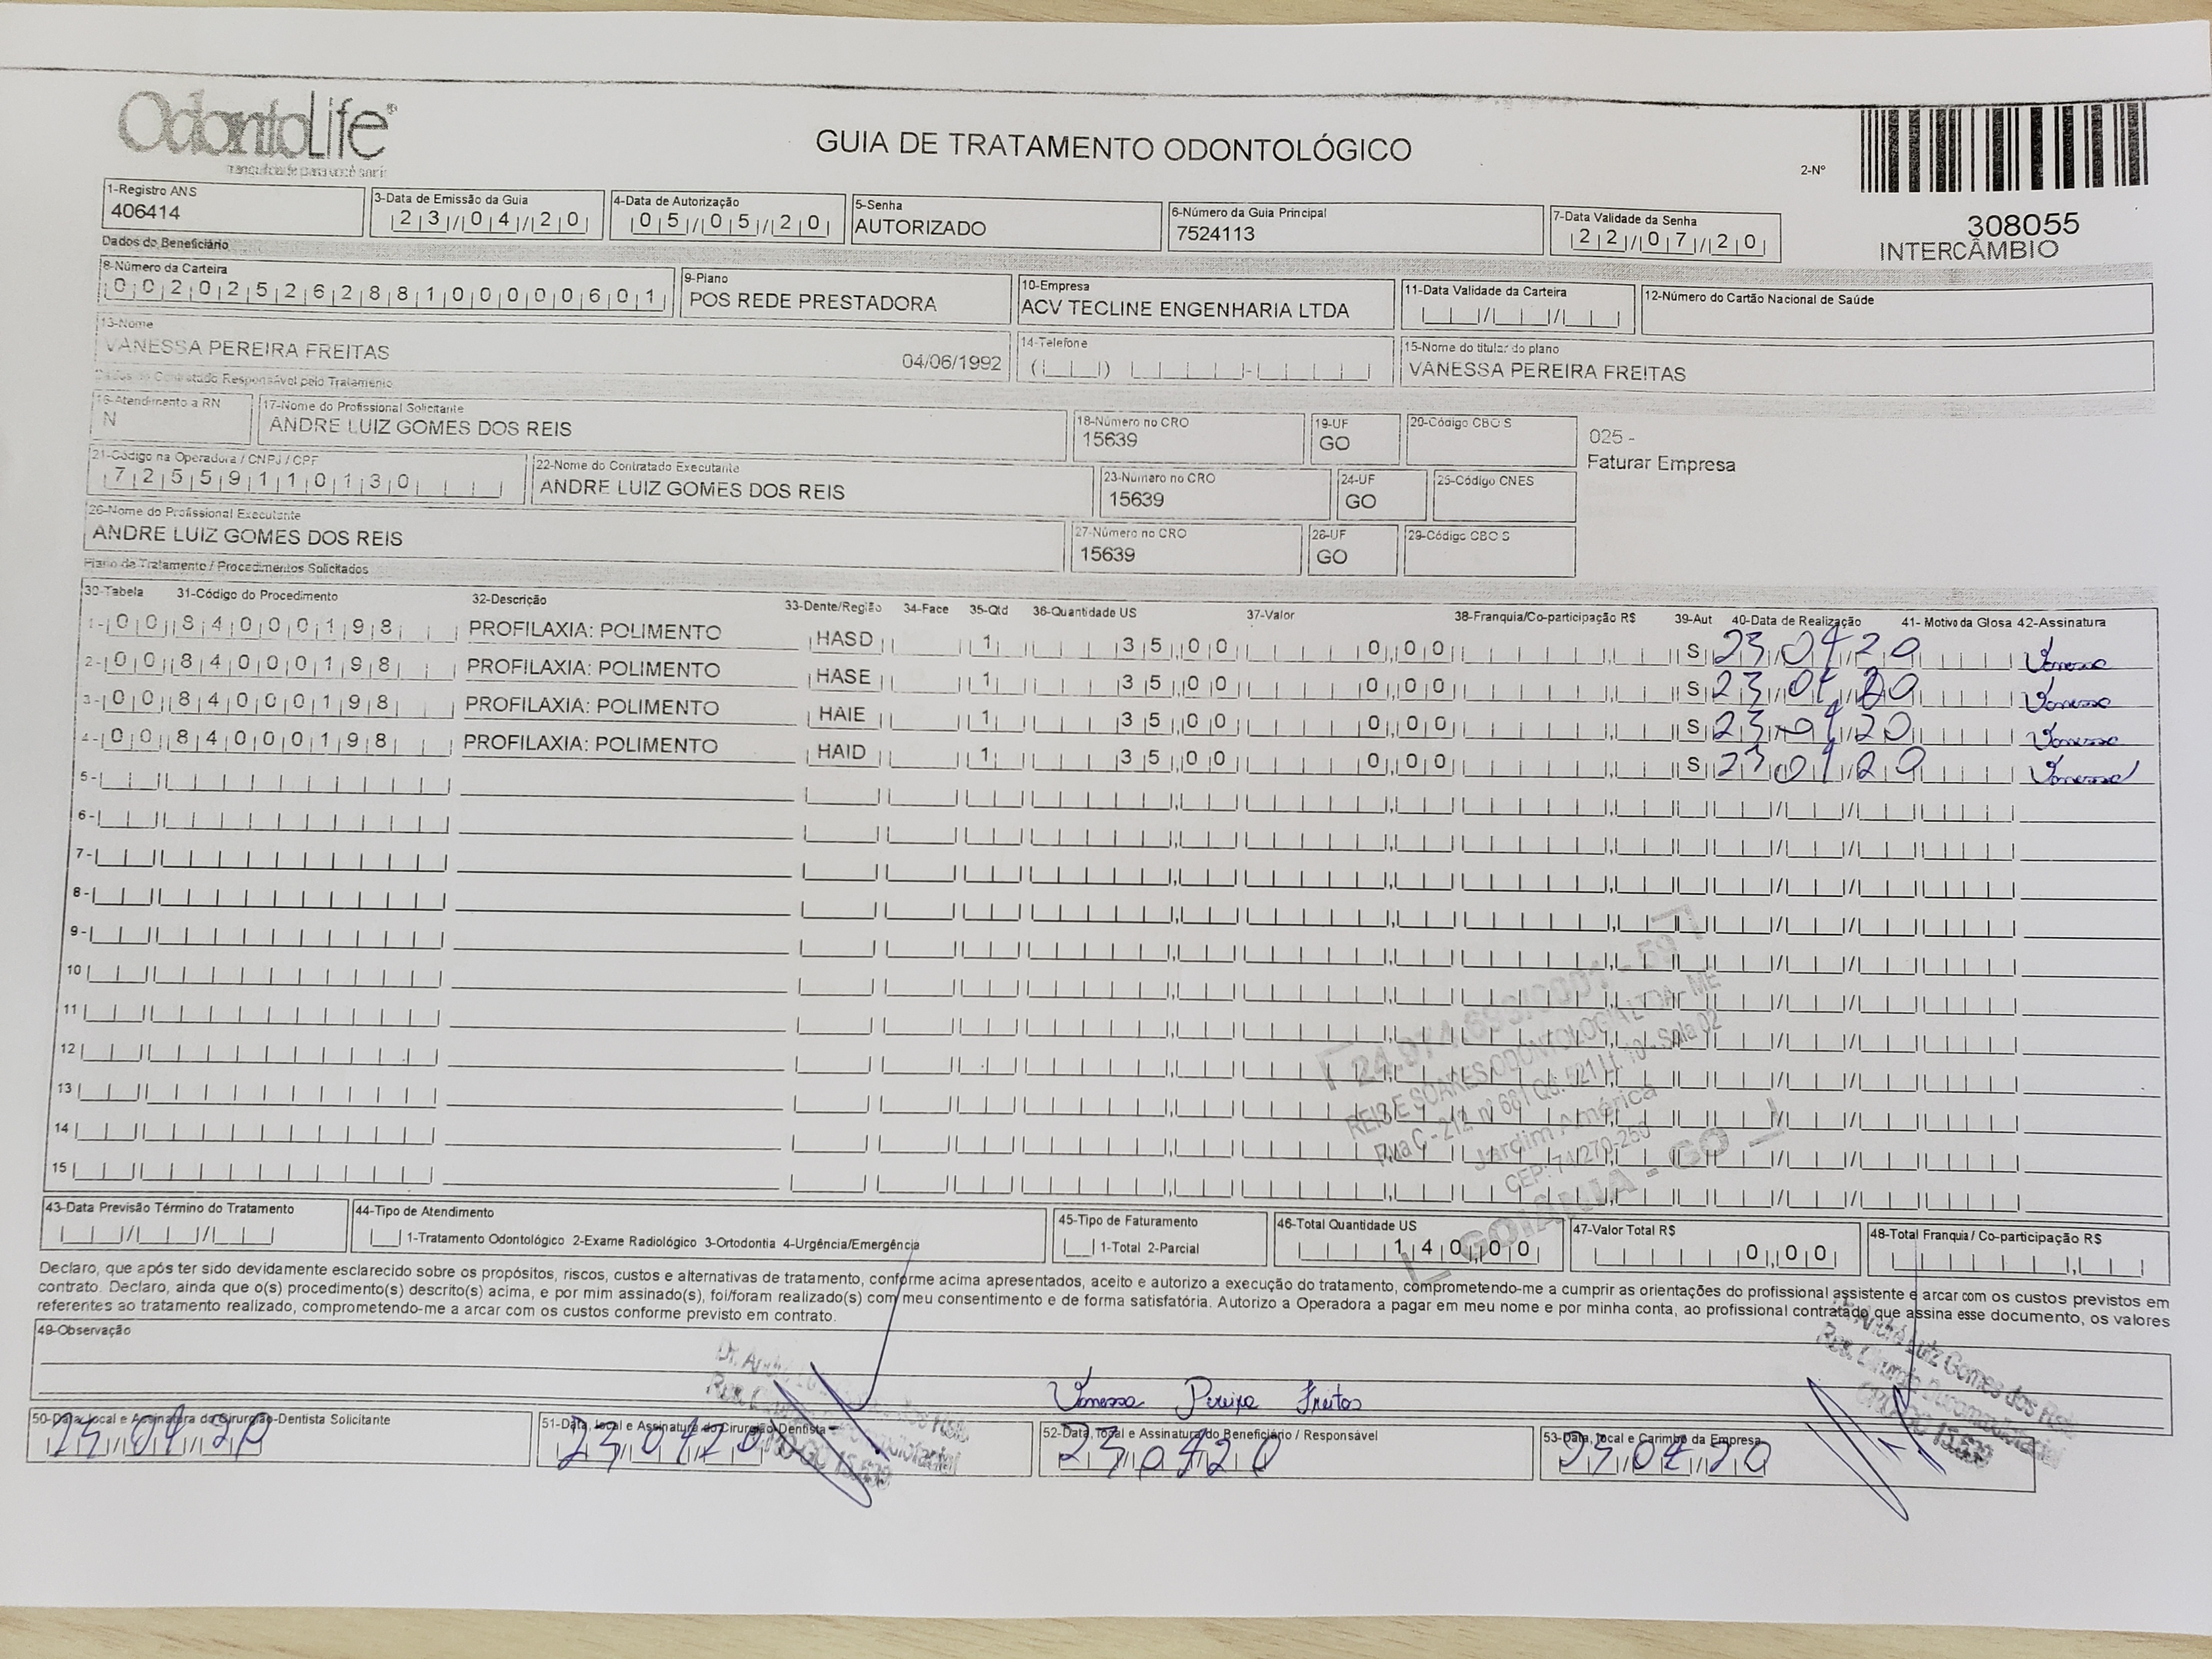 OdontoLife®
tranquilidade para você sorrir
GUIA DE TRATAMENTO ODONTOLÓGICO
2-Nº
308055
INTERCÂMBIO
1-Registro ANS
406414
3-Data de Emissão da Guia
23/04/20
4-Data de Autorização
05/05/20
5-Senha
AUTORIZADO
6-Número da Guia Principal
7524113
7-Data Validade da Senha
22/07/20
Dados do Beneficiário
8-Número da Carteira
00202526288100000601
9-Plano
POS REDE PRESTADORA
10-Empresa
ACV TECLINE ENGENHARIA LTDA
11-Data Validade da Carteira
12-Número do Cartão Nacional de Saúde
13-Nome
VANESSA PEREIRA FREITAS 04/06/1992
14-Telefone
15-Nome do titular do plano
VANESSA PEREIRA FREITAS
Dados do Contratado Responsável pelo Tratamento
16-Atendimento a RN
N
17-Nome do Profissional Solicitante
ANDRE LUIZ GOMES DOS REIS
18-Número no CRO
15639
19-UF
GO
20-Código CBO S
025 -
Faturar Empresa
21-Código na Operadora / CNPJ / CPF
72559110130
22-Nome do Contratado Executante
ANDRE LUIZ GOMES DOS REIS
23-Número no CRO
15639
24-UF
GO
25-Código CNES
26-Nome do Profissional Executante
ANDRE LUIZ GOMES DOS REIS
27-Número no CRO
15639
28-UF
GO
29-Código CBO S
Plano de Tratamento / Procedimentos Solicitados
30-Tabela 31-Código do Procedimento 32-Descrição 33-Dente/Região 34-Face 35-Qtd 36-Quantidade US 37-Valor 38-Franquia/Co-participação R$ 39-Aut 40-Data de Realização 41- Motivo da Glosa 42-Assinatura
1-00 84000198 PROFILAXIA: POLIMENTO HASD 1 35,00 0,00 S 23/04/20 Vanessa
2-00 84000198 PROFILAXIA: POLIMENTO HASE 1 35,00 0,00 S 23/04/20 Vanessa
3-00 84000198 PROFILAXIA: POLIMENTO HAIE 1 35,00 0,00 S 23/04/20 Vanessa
4-00 84000198 PROFILAXIA: POLIMENTO HAID 1 35,00 0,00 S 23/04/20 Vanessa
5-
6-
7-
8-
9-
10
11
12
13
14
15
REIS E SOARES ODONTOLOGIA LTDA-ME
Rua C - 212, nº 661 Qd. 521 Lt. 10 - Sala 02
Jardim América
CEP: 74270-250
GOIÂNIA - GO
43-Data Previsão Término do Tratamento
44-Tipo de Atendimento
1-Tratamento Odontológico 2-Exame Radiológico 3-Ortodontia 4-Urgência/Emergência
45-Tipo de Faturamento
1-Total 2-Parcial
46-Total Quantidade US
140,00
47-Valor Total R$
0,00
48-Total Franquia / Co-participação R$
Declaro, que após ter sido devidamente esclarecido sobre os propósitos, riscos, custos e alternativas de tratamento, conforme acima apresentados, aceito e autorizo a execução do tratamento, comprometendo-me a cumprir as orientações do profissional assistente e arcar com os custos previstos em
contrato. Declaro, ainda que o(s) procedimento(s) descrito(s) acima, e por mim assinado(s), foi/foram realizado(s) com meu consentimento e de forma satisfatória. Autorizo a Operadora a pagar em meu nome e por minha conta, ao profissional contratado que assina esse documento, os valores
referentes ao tratamento realizado, comprometendo-me a arcar com os custos conforme previsto em contrato.
49-Observação
Vanessa Pereira Freitas
André Luiz Gomes dos Reis
50-Data, local e Assinatura do Cirurgião-Dentista Solicitante
23/04/20
51-Data, local e Assinatura do Cirurgião-Dentista
23/04/20
52-Data, local e Assinatura do Beneficiário / Responsável
23/04/20
53-Data, local e Carimbo da Empresa
23/04/20